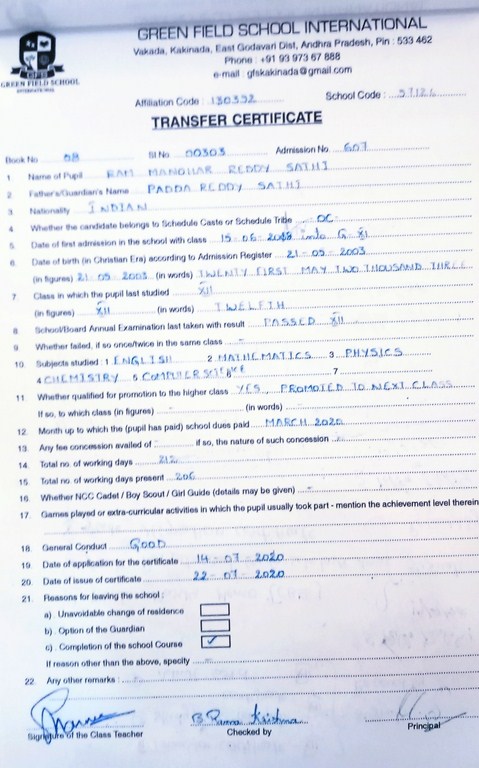 GREEN FIELD SCHOOL INTERNATIONAL
Vakada, Kakinada, East Godavari Dist, Andhra Pradesh, Pin : 533 462
Phone : +91 93 973 67 888
e-mail : gfskakinada@gmail.com
GREEN FIELD SCHOOL
INTERNATIONAL
Affiliation Code : 130332 School Code :
TRANSFER CERTIFICATE
Book No 08 Sl No 00303 Admission No 607
1. Name of Pupil RAM MANOHAR REDDY SATHI
2. Father's/Guardian's Name PADDA REDDY SATHI
3. Nationality INDIAN
4. Whether the candidate belongs to Schedule Caste or Schedule Tribe OC
5. Date of first admission in the school with class 15-06-2018 into G-XI
6. Date of birth (in Christian Era) according to Admission Register 21-05-2003
(in figures) 21-05-2003 (in words) TWENTY FIRST MAY TWO THOUSAND THREE
7. Class in which the pupil last studied XII
(in figures) XII (in words) TWELFTH
8. School/Board Annual Examination last taken with result PASSED XII
9. Whether failed, if so once/twice in the same class -
10. Subjects studied : 1 ENGLISH 2 MATHEMATICS 3 PHYSICS
4 CHEMISTRY 5 COMPUTER SCIENCE 7
11. Whether qualified for promotion to the higher class YES, PROMOTED TO NEXT CLASS
If so, to which class (in figures) - (in words) -
12. Month up to which the (pupil has paid) school dues paid MARCH 2020
13. Any fee concession availed of - if so, the nature of such concession -
14. Total no. of working days 212
15. Total no. of working days present 206
16. Whether NCC Cadet / Boy Scout / Girl Guide (details may be given) -
17. Games played or extra-curricular activities in which the pupil usually took part - mention the achievement level therein
18. General Conduct GOOD
19. Date of application for the certificate 14-07-2020
20. Date of issue of certificate 22-07-2020
21. Reasons for leaving the school :
a) Unavoidable change of residence
b) Option of the Guardian
c) Completion of the school Course ✓
If reason other than the above, specify -
22. Any other remarks : -
B Rama Krishna
Signature of the Class Teacher Checked by Principal